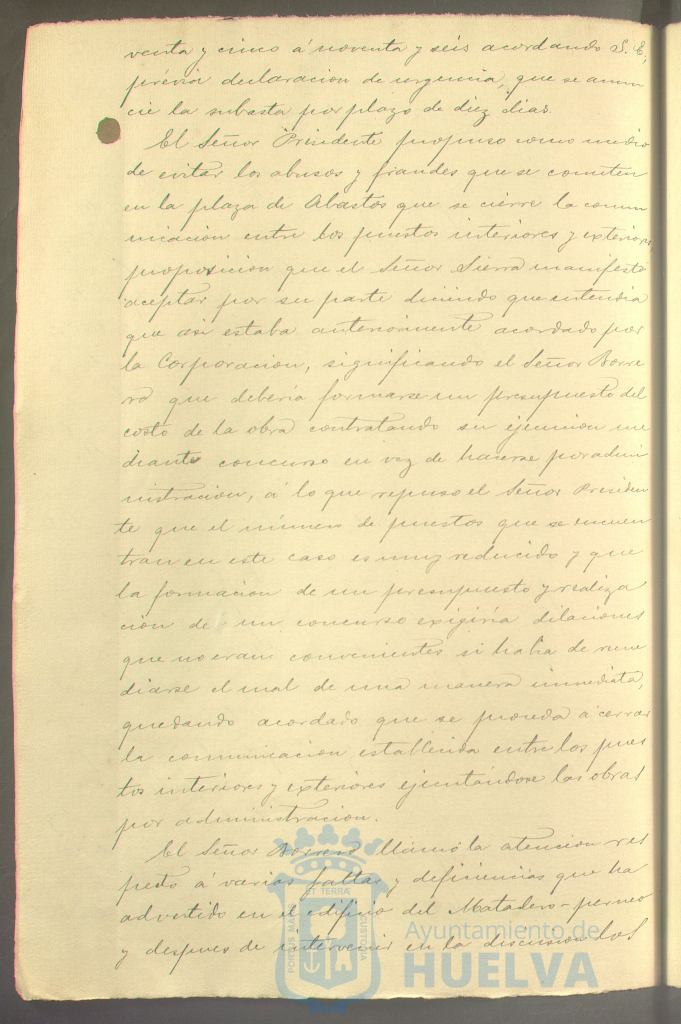 venta y cinco á noventa y seis acordando S. E,
prévia declaracion de urgencia, que se anun
cie la subasta por plazo de diez dias.
El Señor Presidente propuso como medio
de evitar los abusos y fraudes que se cometen
en la plaza de Abastos que se cierre la comu
nicacion entre los puestos interiores y exteriores,
proposicion que el Señor Sierra manifestó
aceptar por su parte diciendo que entendia
que asi estaba anteriormente acordado por
la Corporacion, significando el Señor Borre
ro que deberia formarse un presupuesto del
costo de la obra contratando su ejecucion me
diante concurso en vez de hacerse por admi
nistracion, á lo que repuso el Señor Presiden
te que el número de puestos que se encuen
tran en este caso es muy reducido y que
la formacion de un presupuesto y realiza
cion de un concurso exigiria dilaciones
que no eran convenientes si habia de reme
diarse el mal de una manera inmediata,
quedando acordado que se proceda á cerrar
la comunicacion establecida entre los pues
tos interiores y exteriores ejecutándose las obras
por administracion.
El Señor Borrero llamó la atencion res
pecto á varias faltas y deficiencias que ha
advertido en el edificio del Matadero-perneo
y despues de intervenir en la discusion los
PORTUS MARIS ET TERRÆ CUSTODIA
Ayuntamiento de
HUELVA